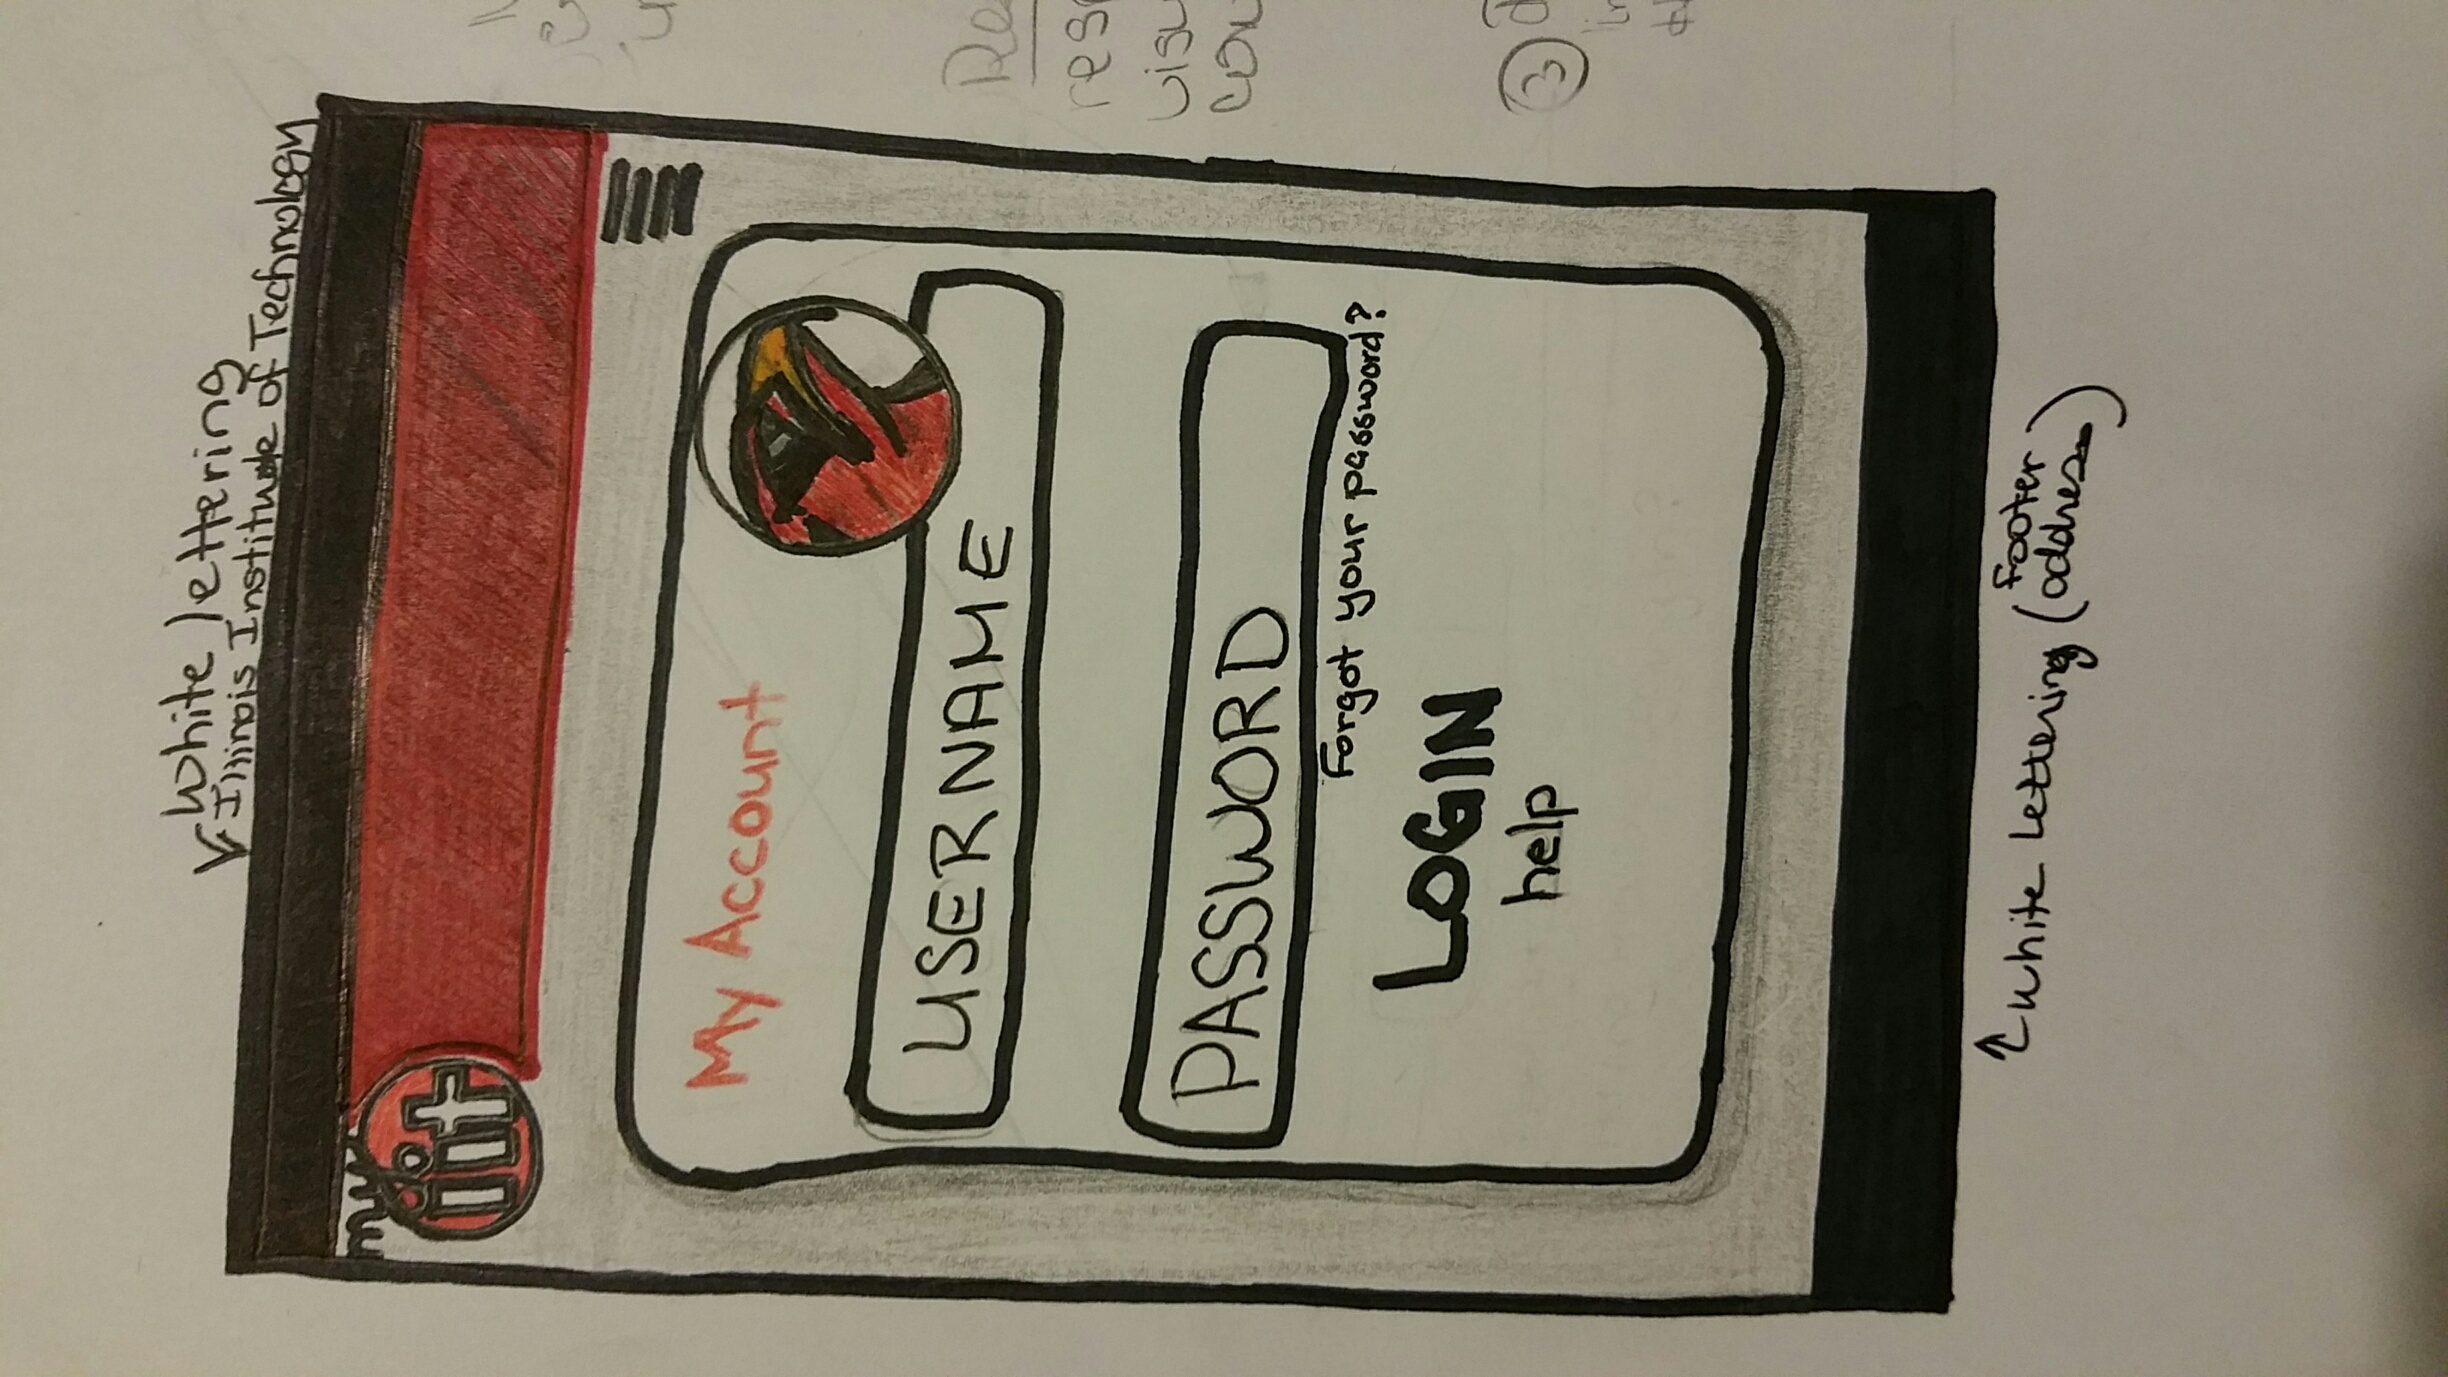 White lettering
Illinois Institute of Technology
my
iit
My Account
USERNAME
PASSWORD
Forgot your password?
LOGIN
help
White Lettering (Footer address)
3